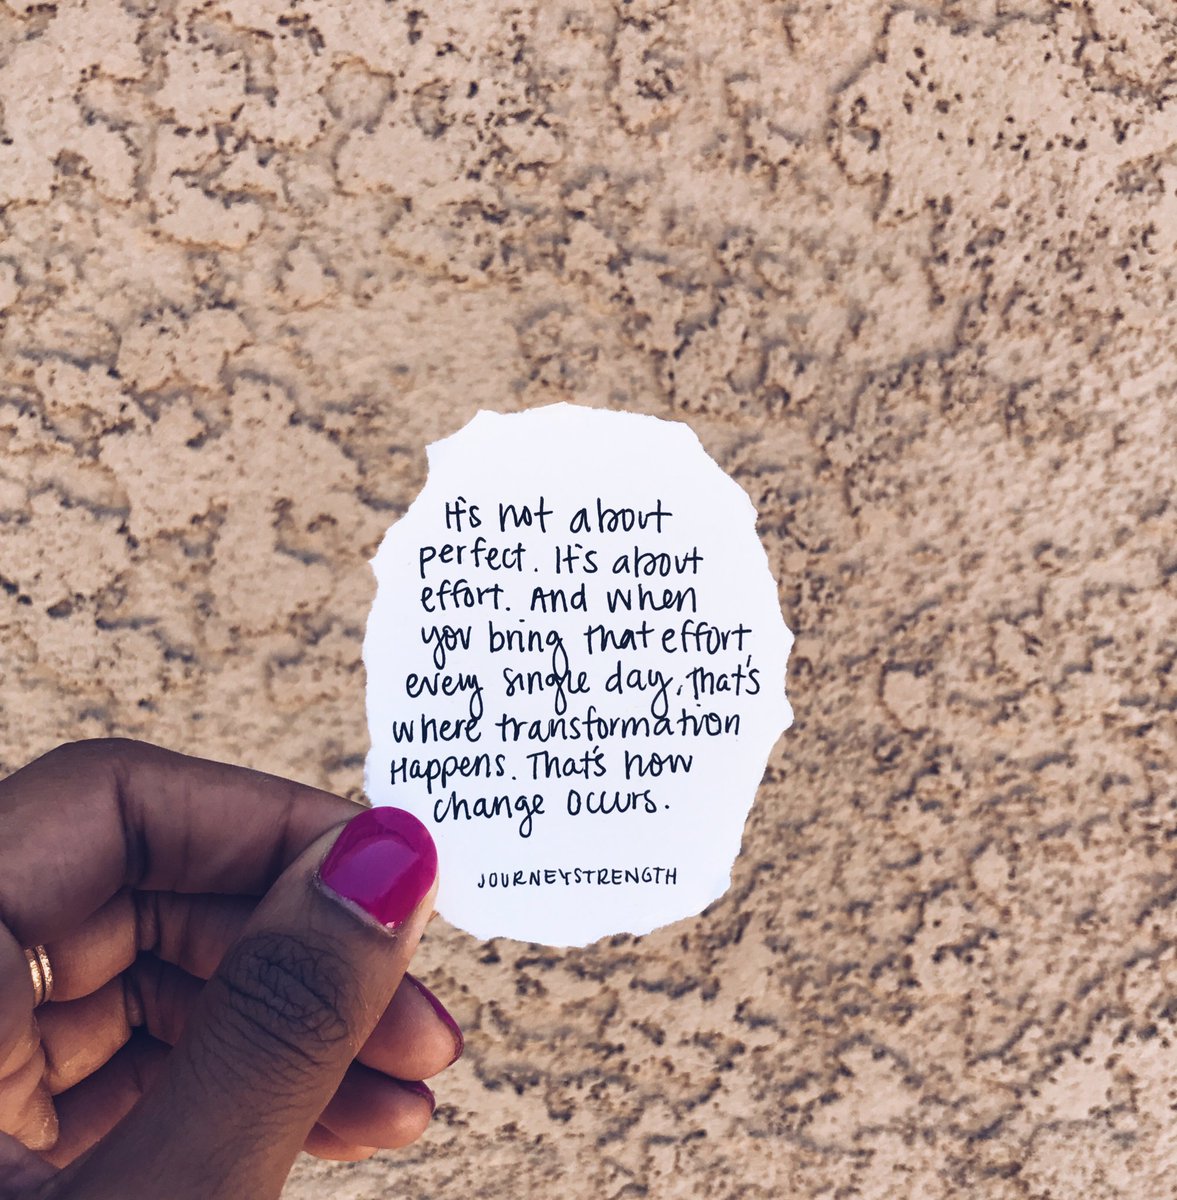 It's not about
perfect. It's about
effort. And when
you bring that effort
every single day, that's
where transformation
Happens. That's how
change occurs.
JOURNEYSTRENGTH